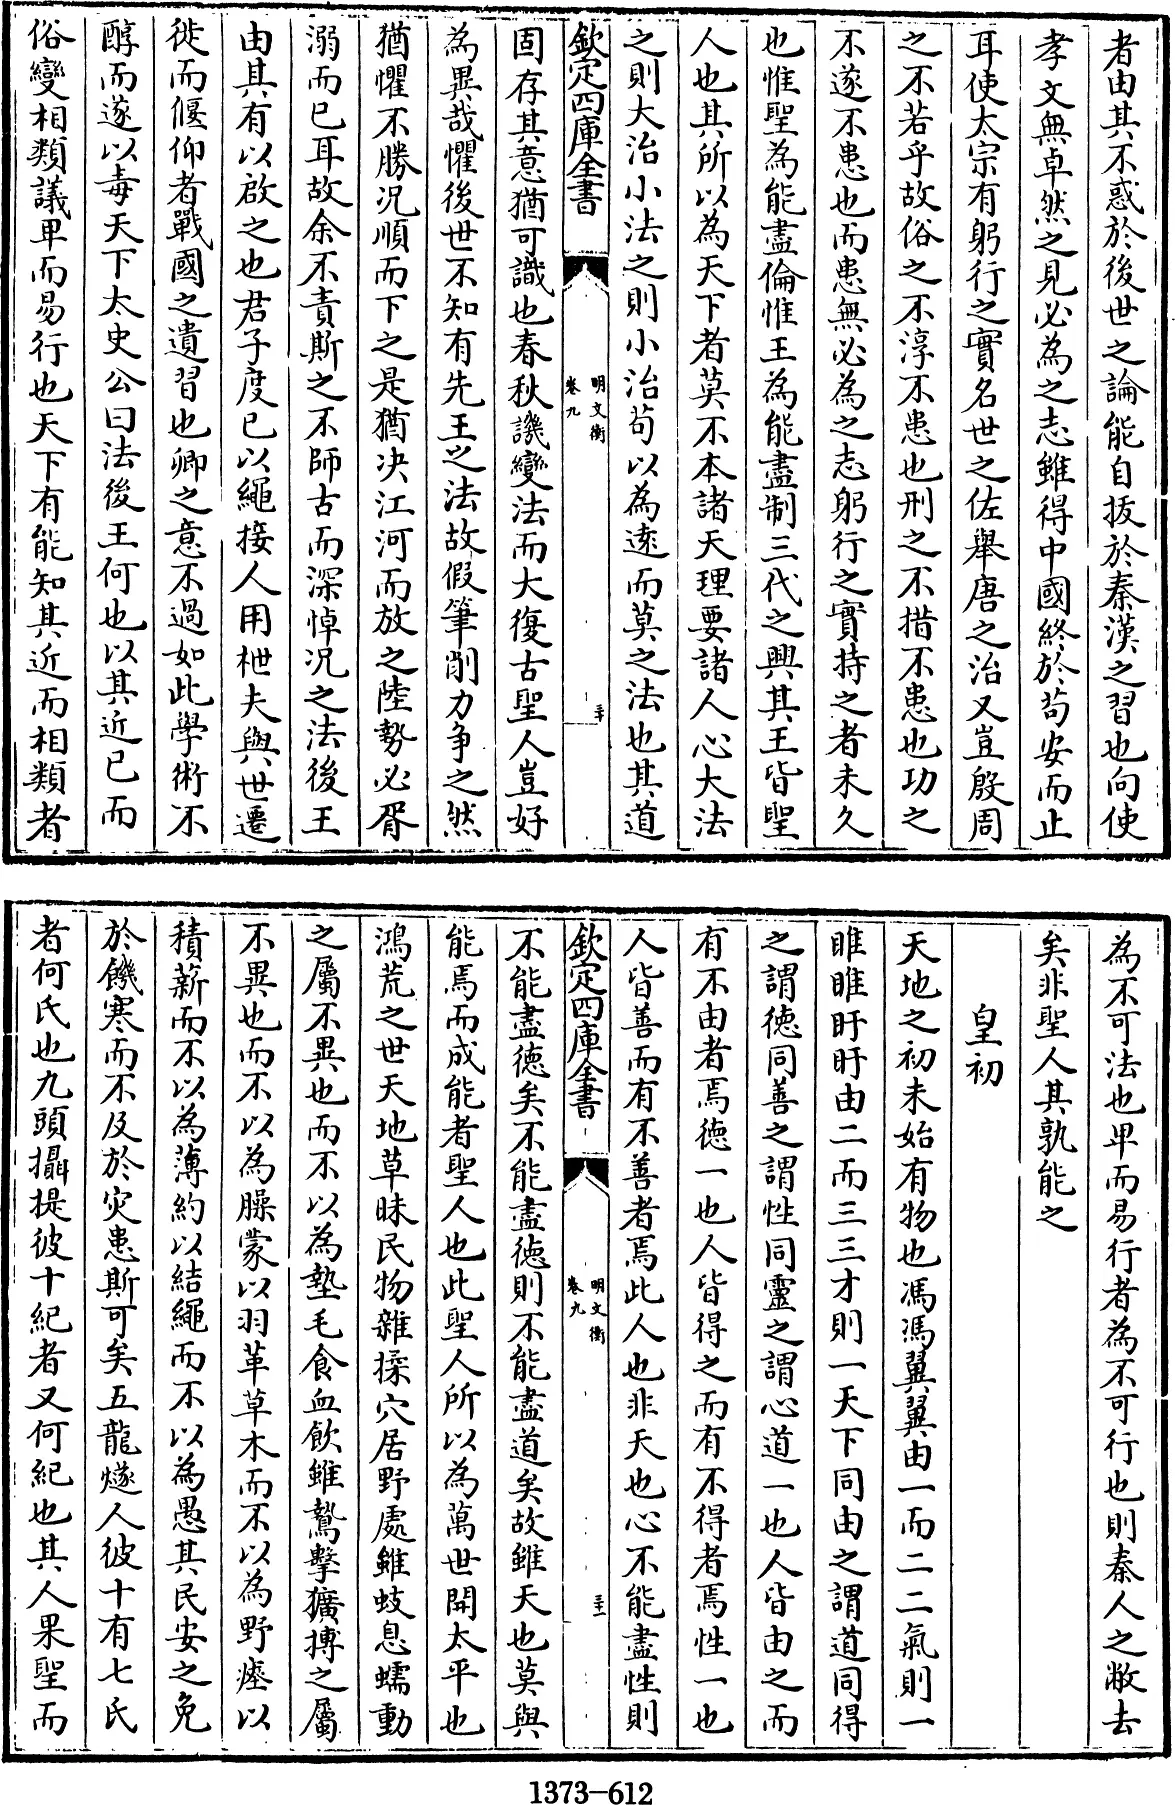 者由其不惑於後世之論能自拔於秦漢之習也向使
孝文無卓然之見必為之志雖得中國終於苟安而止
耳使太宗有躬行之實名世之佐舉唐之治又豈殷周
之不若乎故俗之不淳不患也刑之不措不患也功之
不遂不患也而患無必為之志躬行之實持之者未久
也惟聖為能盡倫惟王為能盡制三代之興其王皆聖
人也其所以為天下者莫不本諸天理要諸人心大法
之則大治小法之則小治茍以為逺而莫之法也其道
欽定四庫全書
明文衡
卷九
三十
固存其意猶可識也春秋譏變法而大復古聖人豈好
為異哉懼後世不知有先王之法故假筆削力争之然
猶懼不勝況順而下之是猶決江河而放之陸勢必胥
溺而已耳故余不責斯之不師古而深悼況之法後王
由其有以啟之也君子度已以繩接人用枻夫與世遷
徙而偃仰者戰國之遺習也卿之意不過如此學術不
醇而遂以毒天下太史公曰法後王何也以其近已而
俗變相類議卑而易行也天下有能知其近而相類者
為不可法也卑而易行者為不可行也則秦人之敝去
矣非聖人其孰能之
皇初
天地之初未始有物也馮馮翼翼由一而二二氣則一
睢睢盱盱由二而三三才則一天下同由之謂道同得
之謂徳同善之謂性同靈之謂心道一也人皆由之而
有不由者焉徳一也人皆得之而有不得者焉性一也
人皆善而有不善者焉此人也非天也心不能盡性則
欽定四庫全書
明文衡
卷九
三十一
不能盡徳矣不能盡徳則不能盡道矣故雖天也莫與
能焉而成能者聖人也此聖人所以為萬世開太平也
鴻荒之世天地草昧民物雜揉穴居野處雖蚑息蠕動
之屬不異也而不以為墊毛食血飲雖鷙擊獷搏之屬
不異也而不以為臊蒙以羽革草木而不以為野瘞以
積薪而不以為薄約以結繩而不以為愚其民安之免
於饑寒而不及於灾患斯可矣五龍燧人彼十有七氏
者何氏也九頭攝提彼十紀者又何紀也其人果聖而
1373-612